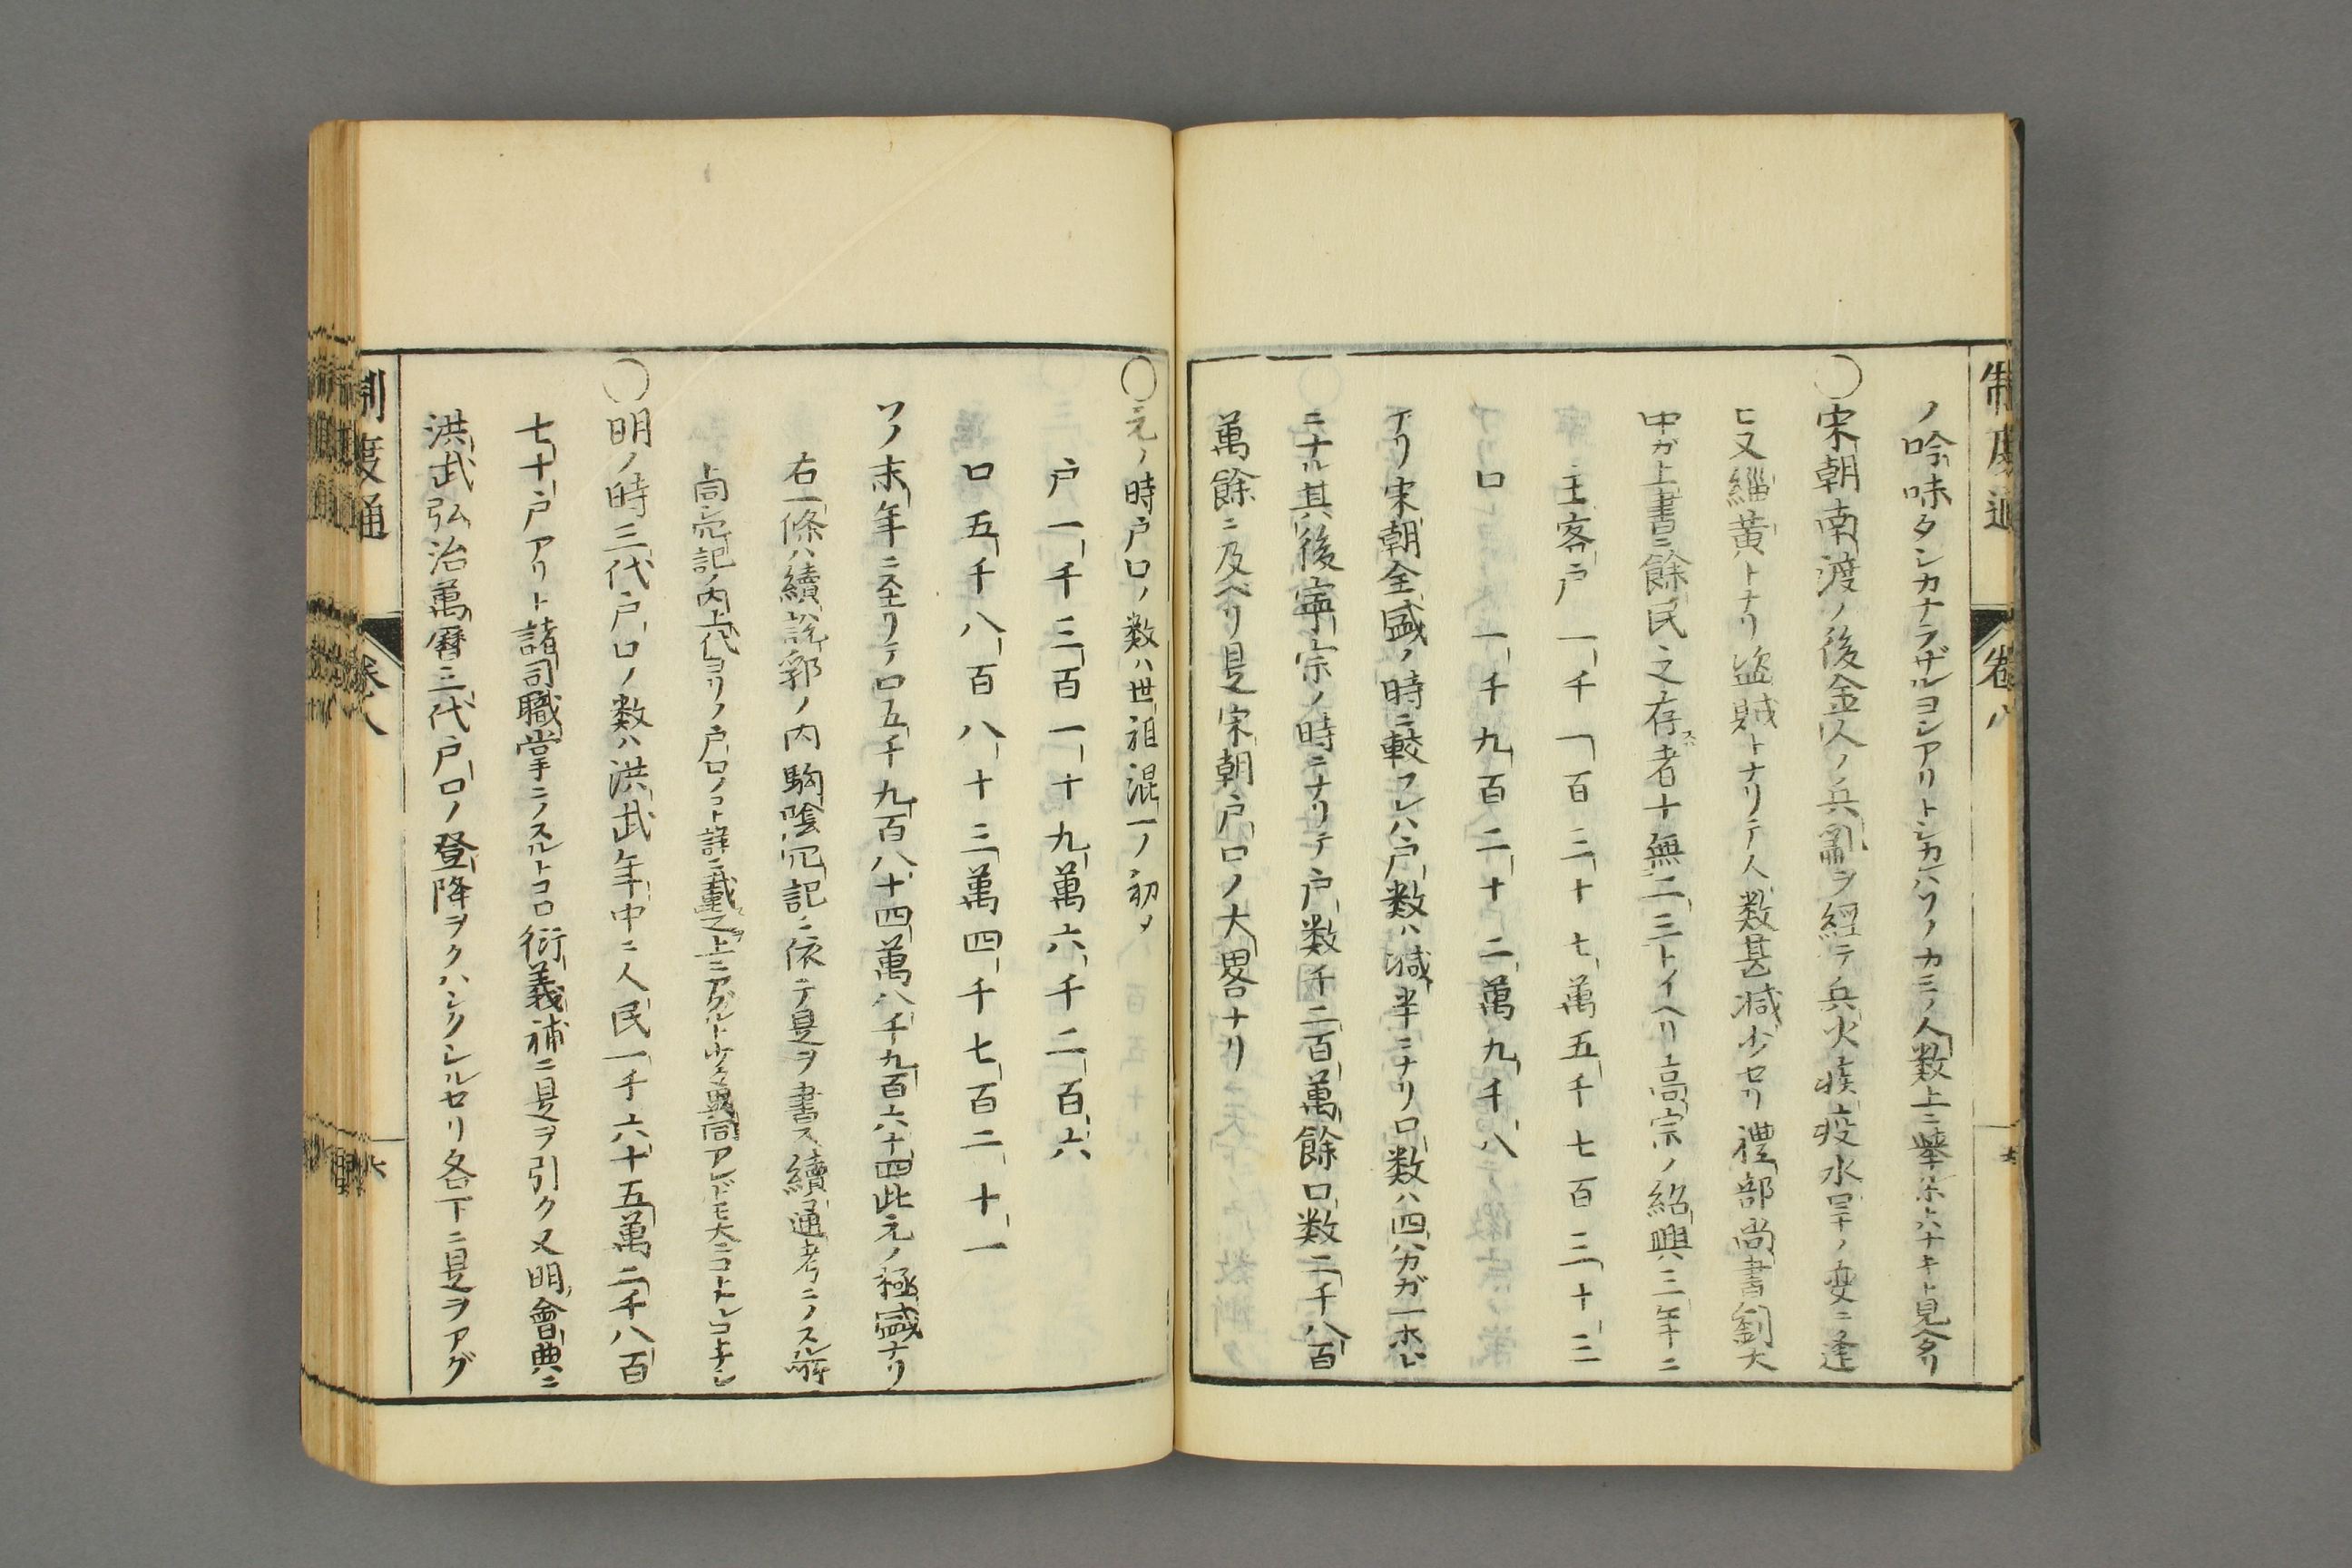 ノ吟味タシカナラザルヨシアリトシカレハソノカミノ人数上ニ挙ル六ナキト見ヘタリ
〇宋朝南渡ノ後金人ノ兵亂ヲ經テ兵火ト疾疫水旱ノ変ニ逢
ヒ又緇黄トナリ盗賊トナリテ人数甚减少セリ禮部尚書劉大
中ガ上書ニ餘民之存者十無二三トイヘリ高宗ノ紹興三年ニ
主客戸一千一百二十七萬五千七百三十三
口一千九百二十二萬九千八
アリ宋朝全盛ノ時ニ較フレハ戸数ハ减半ニナリ口数ハ四分ガ一ホト
ニナル其後寧宗ノ時ニナリテ戸数千二百萬餘口数二千八百
萬餘ニ及ベリ是宋朝戸口ノ大畧ナリ
〇元ノ時戸口ノ数ハ世祖混一ノ初メ
戸一千三百一十九萬六千二百六
口五千八百八十三萬四千七百二十一
ソノ末年ニ至リテ口五千九百八十四萬八千九百六十四此元ノ極盛ナリ
右一條ハ續説郛ノ内駒陰冗記ニ依テ是ヲ書ス續通考ニノスル所
ト同シ冗記ノ内上代ヨリノ戸口ノコト詳ニ載之上ニアグルト少々異同アレドモ大ニコトナルコトナシ
〇明ノ時三代戸口ノ数ハ洪武年中ニ人民一千六十五萬二千八百
七十戸アリト諸司職掌ニノスルトコロ衍義補ニ是ヲ引ク又明會典ニ
洪武弘治萬暦三代戸口ノ登降ヲクハシクシルセリ各下ニ是ヲアグ
制度通
卷八